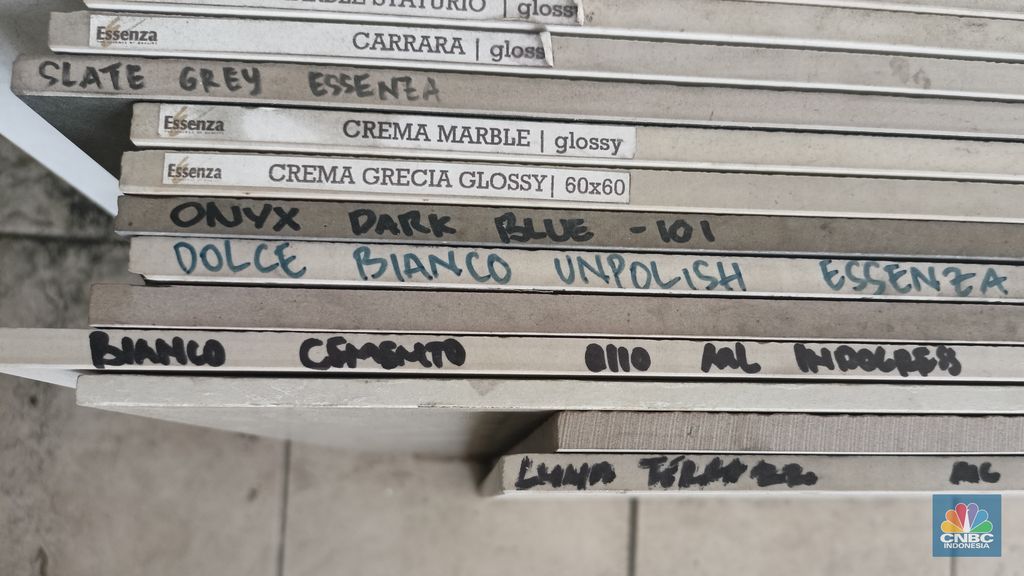 STATURIO | glossy
Essenza CARRARA | gloss
SLATE GREY ESSENZA
Essenza CREMA MARBLE | glossy
Essenza CREMA GRECIA GLOSSY| 60x60
ONYX DARK BLUE - 101
DOLCE BIANCO UNPOLISH ESSENZA
BIANCO CEMENTO 0110 ML INDOGRESS
LUNA
CNBC
INDONESIA